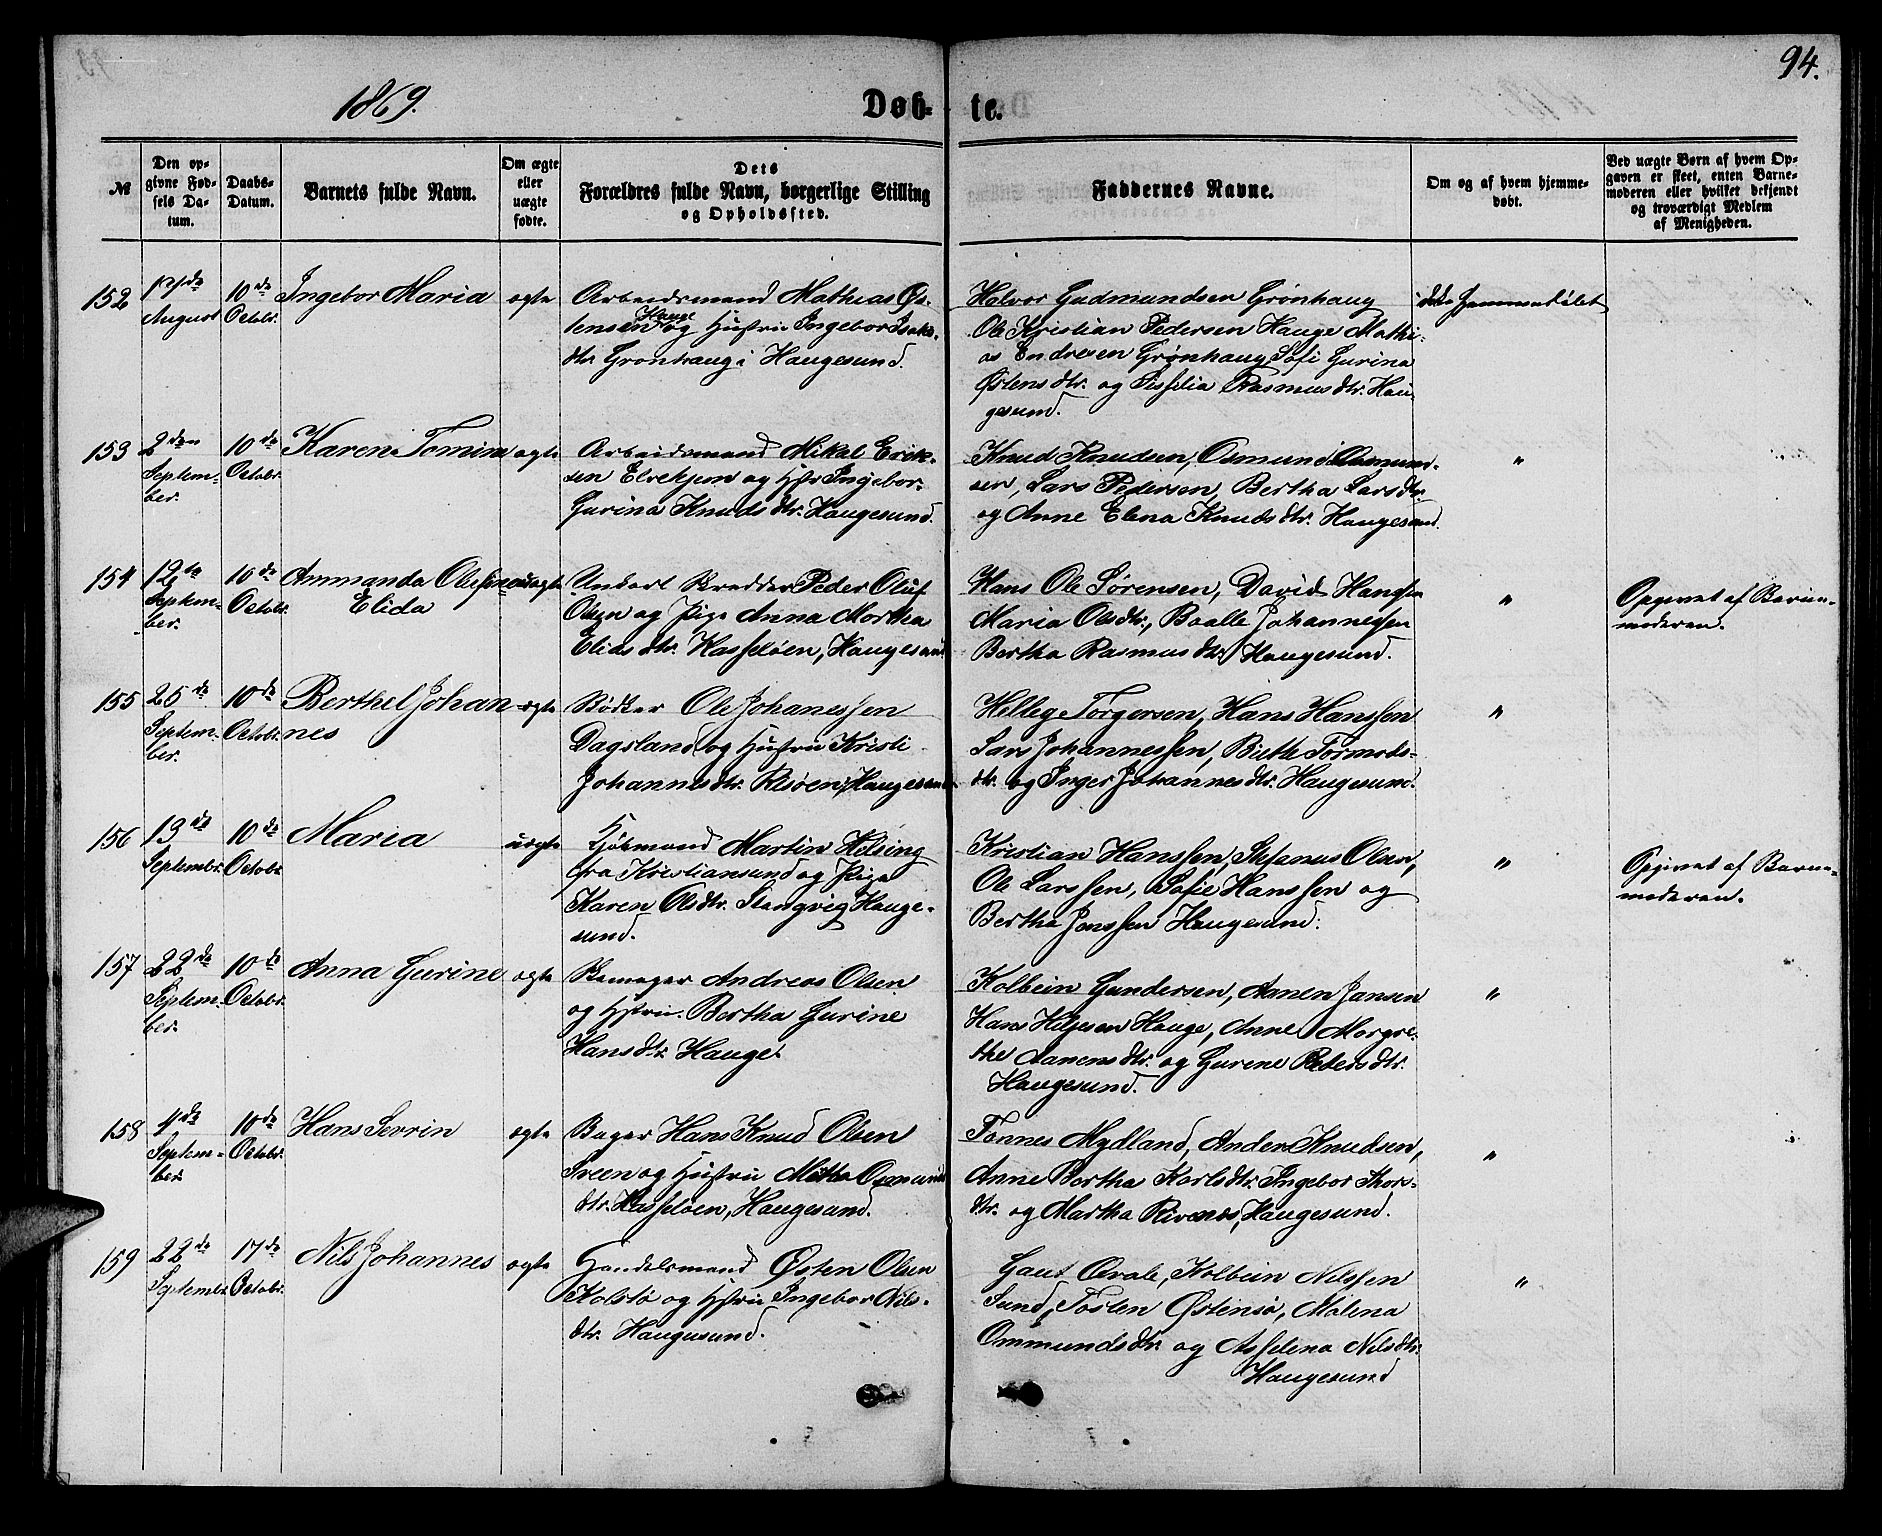 94.
1869.
Døb- te.
№
Den op-
givne Fød-
sels Da-
tum.
Daabs-
Datum.
Barnets fulde Navn.
Om ægte
eller
uægte
fødte.
Dets
Forældres fulde Navn, borgerlige Stilling
og Opholdssted.
Faddernes Navne.
Om og af hvem hjemme-
døbt.
Ved uægte Børn af hvem Op-
gaven er skeet, enten Barne-
moderen eller hvilket bekjendt
og troværdigt Medlem
af Menigheden.
152
August
10de
Octobr.
Ingebor Maria
ægte
Arbeidsmand Mathias Øs-
tensen Hauge og Hustru Ingebor Isaks-
dtr. Grønhaug i Haugesund.
Halvor Gudmundsen Grønhaug
Ole Kristian Pedersen Hauge Mathi-
as Endresen Grønhaug Sofi Gurina
Østensdtr. og Sissilia Rasmusdtr. Hau-
gesund.
ikke hjemmedøbt
153
2den
Septem-
ber.
10de
Octobr.
Karen Tomine
ægte
Arbeidsmand Mikal Erik-
sen Elvekjem og Hstr Ingebor-
Gurina Knudsdtr. Haugesund.
Knud Knudsen, Osmund Osmun-
sen, Lars Pedersen, Bertha Larsdtr.
og Anne Elena Knudsdtr. Haugesund.
"
154
12te
Septem-
ber.
10de
Octobr.
Ammanda Olefine
Elida
uægte
Unkarl Skrædder Peder Oluf
Olsen og Pige Anna Morthea
Eliasdtr. Hasseløen, Haugesund
Hans Ole Sørensen, David Hansen
Maria Olsdtr., Baalle Johannessen
Bertha Rasmusdtr. Haugesund.
"
Opgivet af Barne-
moderen.
155
25de
Septem-
ber.
10de
Octobr.
Berthel Johan-
nes
ægte
Bødker Ole Johanessen
Dagsland og Hustru Kristi
Johannesdtr. Risøen, Haugesund
Helleg Torgersen, Hans Hanssen
Lars Johannessen, Birthe Tormods-
dtr. og Inger Johannesdtr. Haugesund.
"
156
13de
Septembr.
10de
Octobr.
Maria
uægte
Kjøbmand Martin Helsing
fra Kristiansund og Pige
Karen Olsdtr. Stangvig Hauge-
sund.
Kristian Hanssen, Stefanus Olsen,
Ole Larssen, Sofie Hanssen og
Bertha Jonssen Haugesund.
"
Opgivet af Barne-
moderen.
157
22de
Septem-
ber.
10de
Octobr.
Anna Gurine
ægte
Skomager Andreas Olsen
og Hstru. Bertha Gurine
Hansdtr. Hauge.
Kolbein Gundersen, Amen Jansen
Hans Heljesen Hauge, Anne Morgre-
the Aanensdtr. og Gurene Pedersdtr.
Haugesund.
"
158
4de
Septem-
ber.
10de
Octobr.
Hans Serrin
ægte
Bager Hans Knud Olsen
Sveen og Hustru Mette Osmunds
dtr. Hasseløen, Haugesund.
Tønnes Mydland, Anders Knudsen,
Anne Bertha Karlsdtr. Ingebor Thors-
dtr. og Martha Rivenes, Haugesund.
"
159
22de
September
17de
Octobr.
Nils Johannes
ægte
Handelsmand Østen Olsen
Kolstø og Hstru Ingebor Nils-
dtr. Haugesund.
Gaut Ørale, Kolbein Nilssen
Sund, Tosten Østensø, Malena
Ommundsdtr. og Asselena Nilsdtr.
Haugesund
"